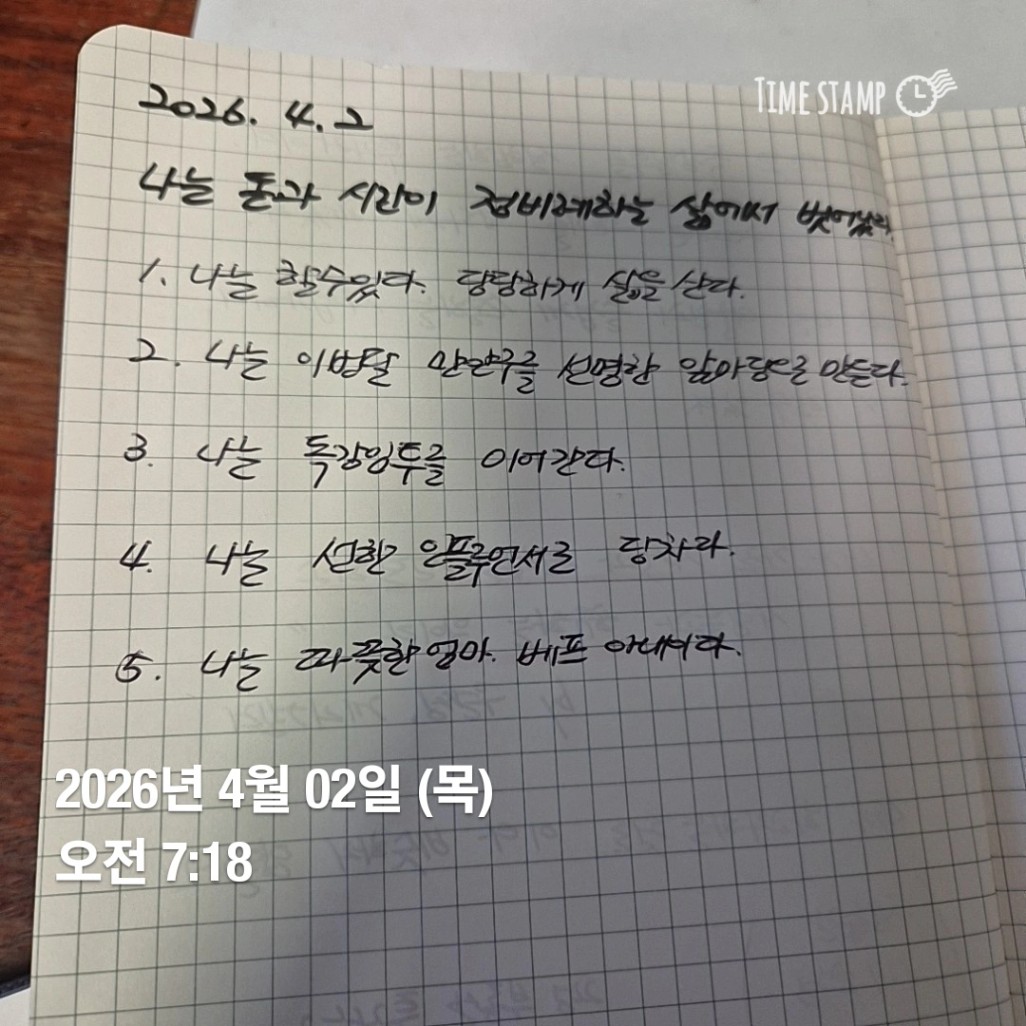 TIME STAMP
2026. 4. 2
나는 돈과 시간이 정비례하는 삶에서 벗어났다.
1. 나는 할수있다. 당당하게 삶을 산다.
2. 나는 이번달 만안구를 선명한 앞마당으로 만든다.
3. 나는 독강임투를 이어간다.
4. 나는 선한 인플루언서로 당차라.
5. 나는 따뜻한 엄마. 베프 아내이다.
2026년 4월 02일 (목)
오전 7:18